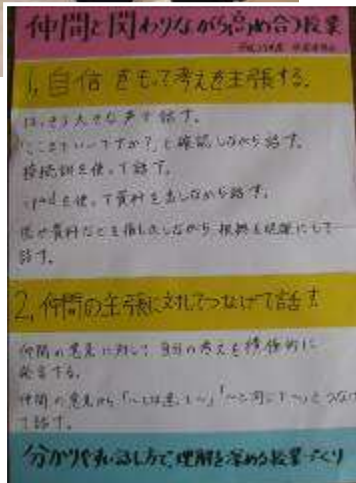 仲間と関わりながら高め合う授業
1, 自信をもって考えを主張する。
はっきり大きな声で話す。
「ここまでいいですか?」と確認しながら話す。
接続詞を使って話す。
ipadを使って資料を出しながら話す。
図や資料などを指し示しながら 根拠を明確にして
話す。
2, 仲間の主張に対してつなげて話す
仲間の意見に対して 自分の考えを積極的に
発言する。
仲間の意見から「〜とは違って〜」「〜と同じで〜」とつなげ
て話す。
分かりやすい話し方で、理解を深める授業づくり